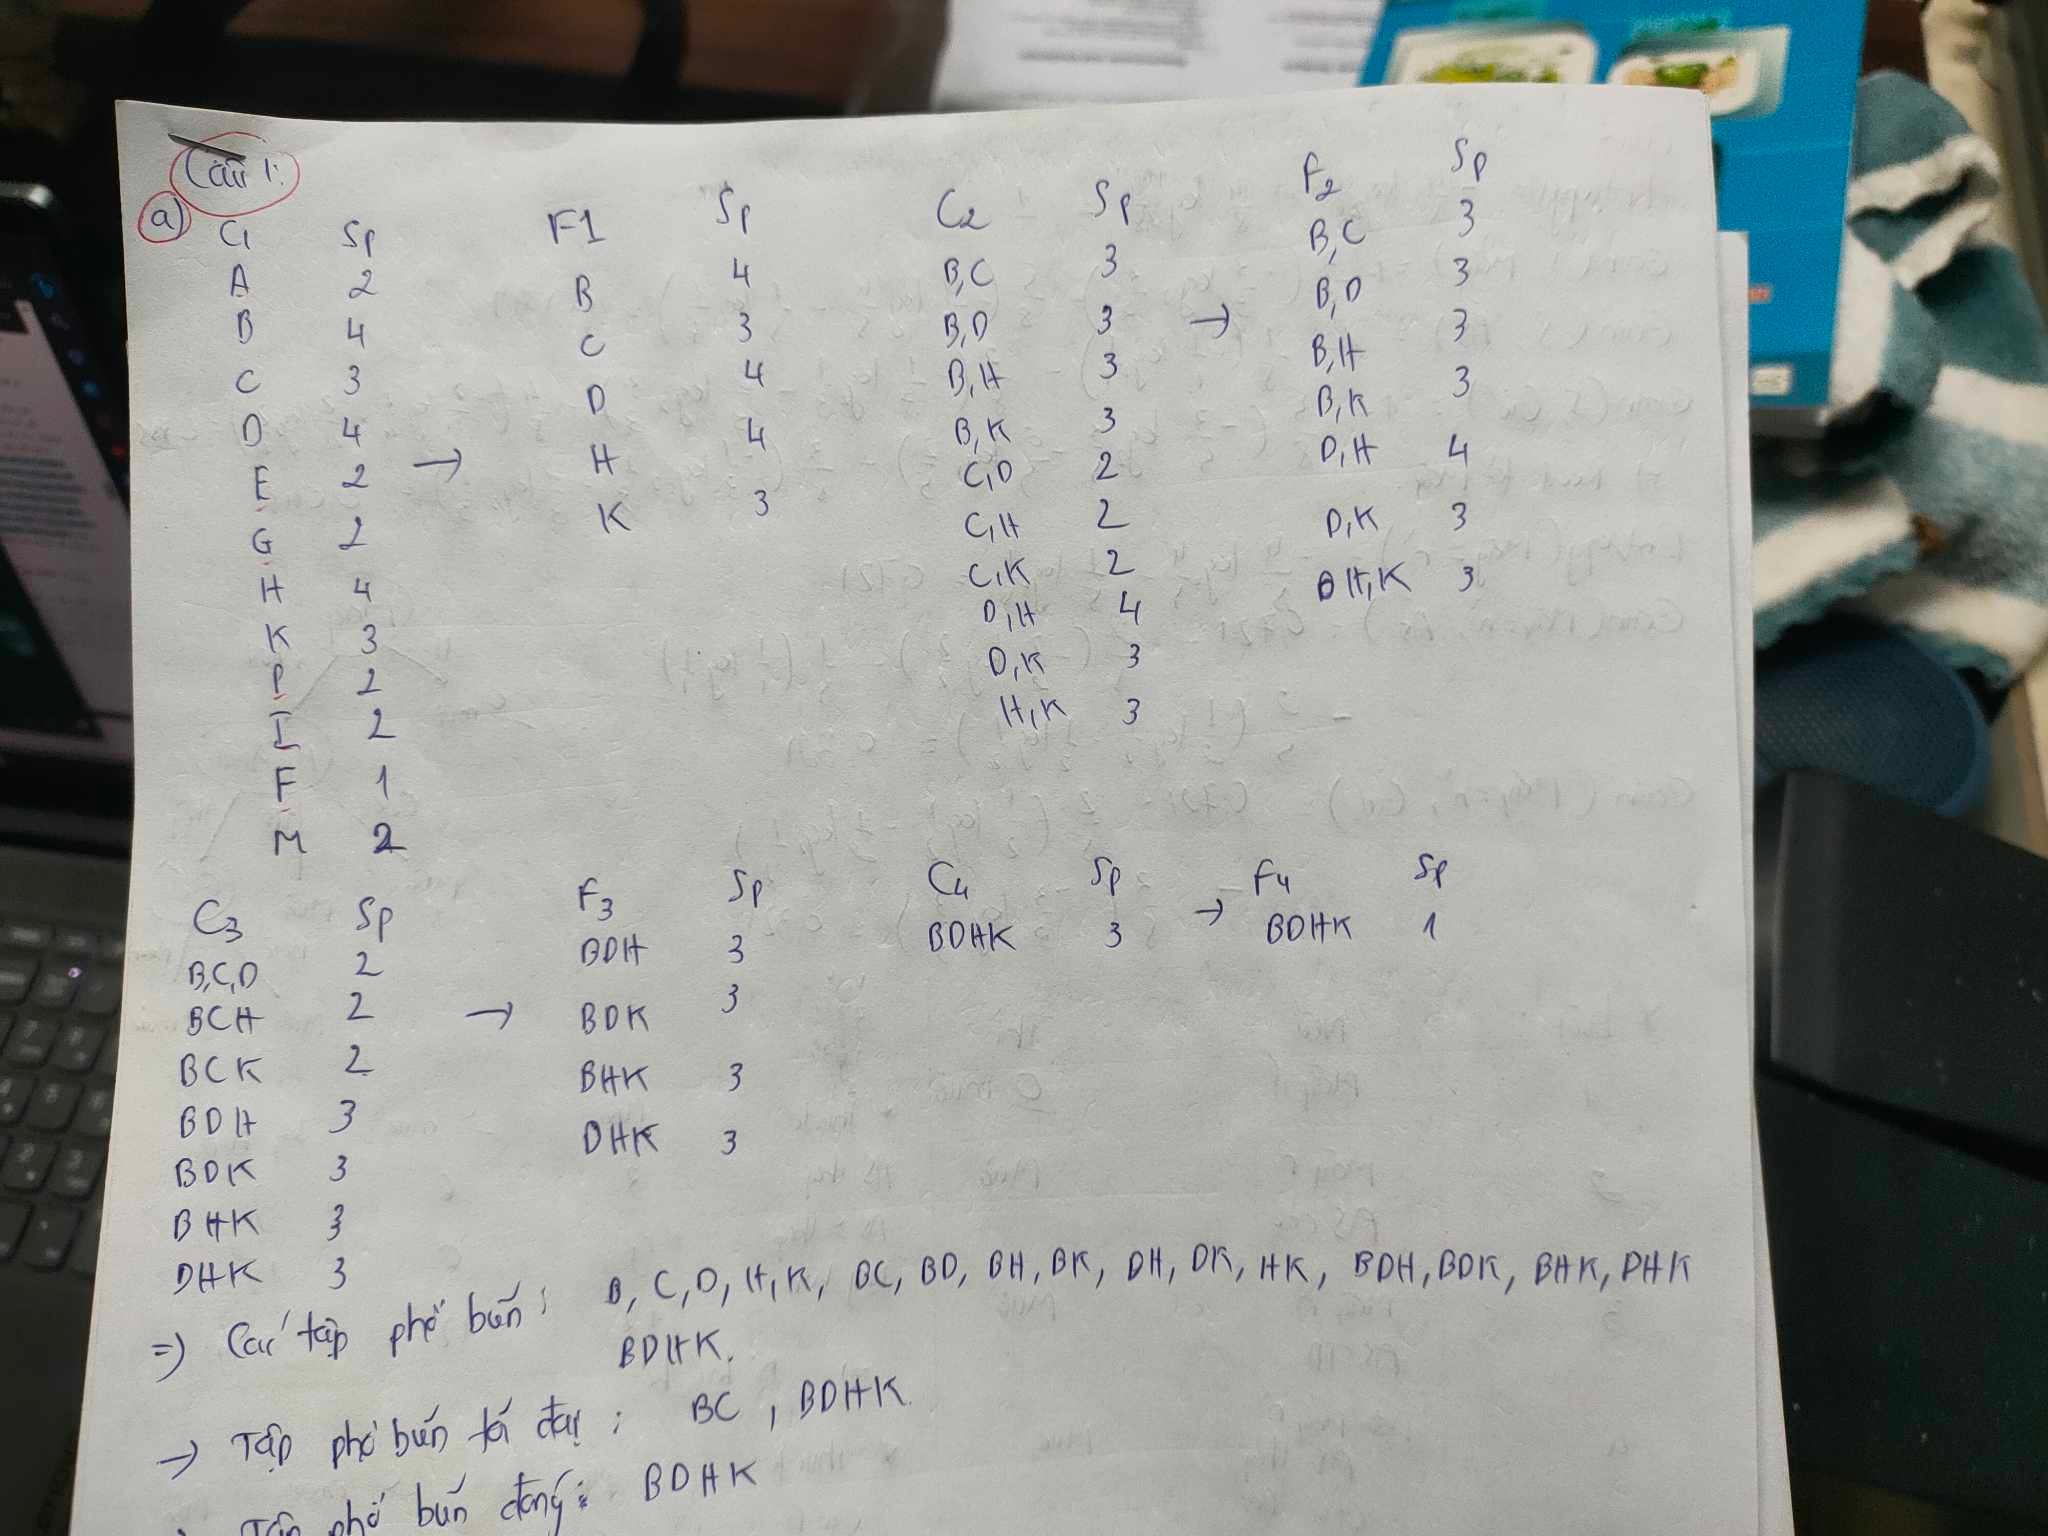 Câu 1:
a)
C1 Sp
A 2
B 4
C 3
D 4
E 2
G 2
H 4
K 3
P 2
I 2
F 1
M 2
→
F1 Sp
B 4
C 3
D 4
H 4
K 3
C2 Sp
B,C 3
B,D 3
B,H 3
B,K 3
C,D 2
C,H 2
C,K 2
D,H 4
D,K 3
H,K 3
→
F2 Sp
B,C 3
B,D 3
B,H 3
B,K 3
D,H 4
D,K 3
H,K 3
C3 Sp
B,C,D 2
BCH 2
BCK 2
BDH 3
BDK 3
BHK 3
DHK 3
→
F3 Sp
BDH 3
BDK 3
BHK 3
DHK 3
C4 Sp
BDHK 3
→
F4 Sp
BDHK 1
=) Các tập phổ biến: B, C, D, H, K, BC, BD, BH, BK, DH, DK, HK, BDH, BDK, BHK, DHK
BDHK.
→ Tập phổ biến tối đại: BC, BDHK.
Tập phổ biến đóng: BDHK